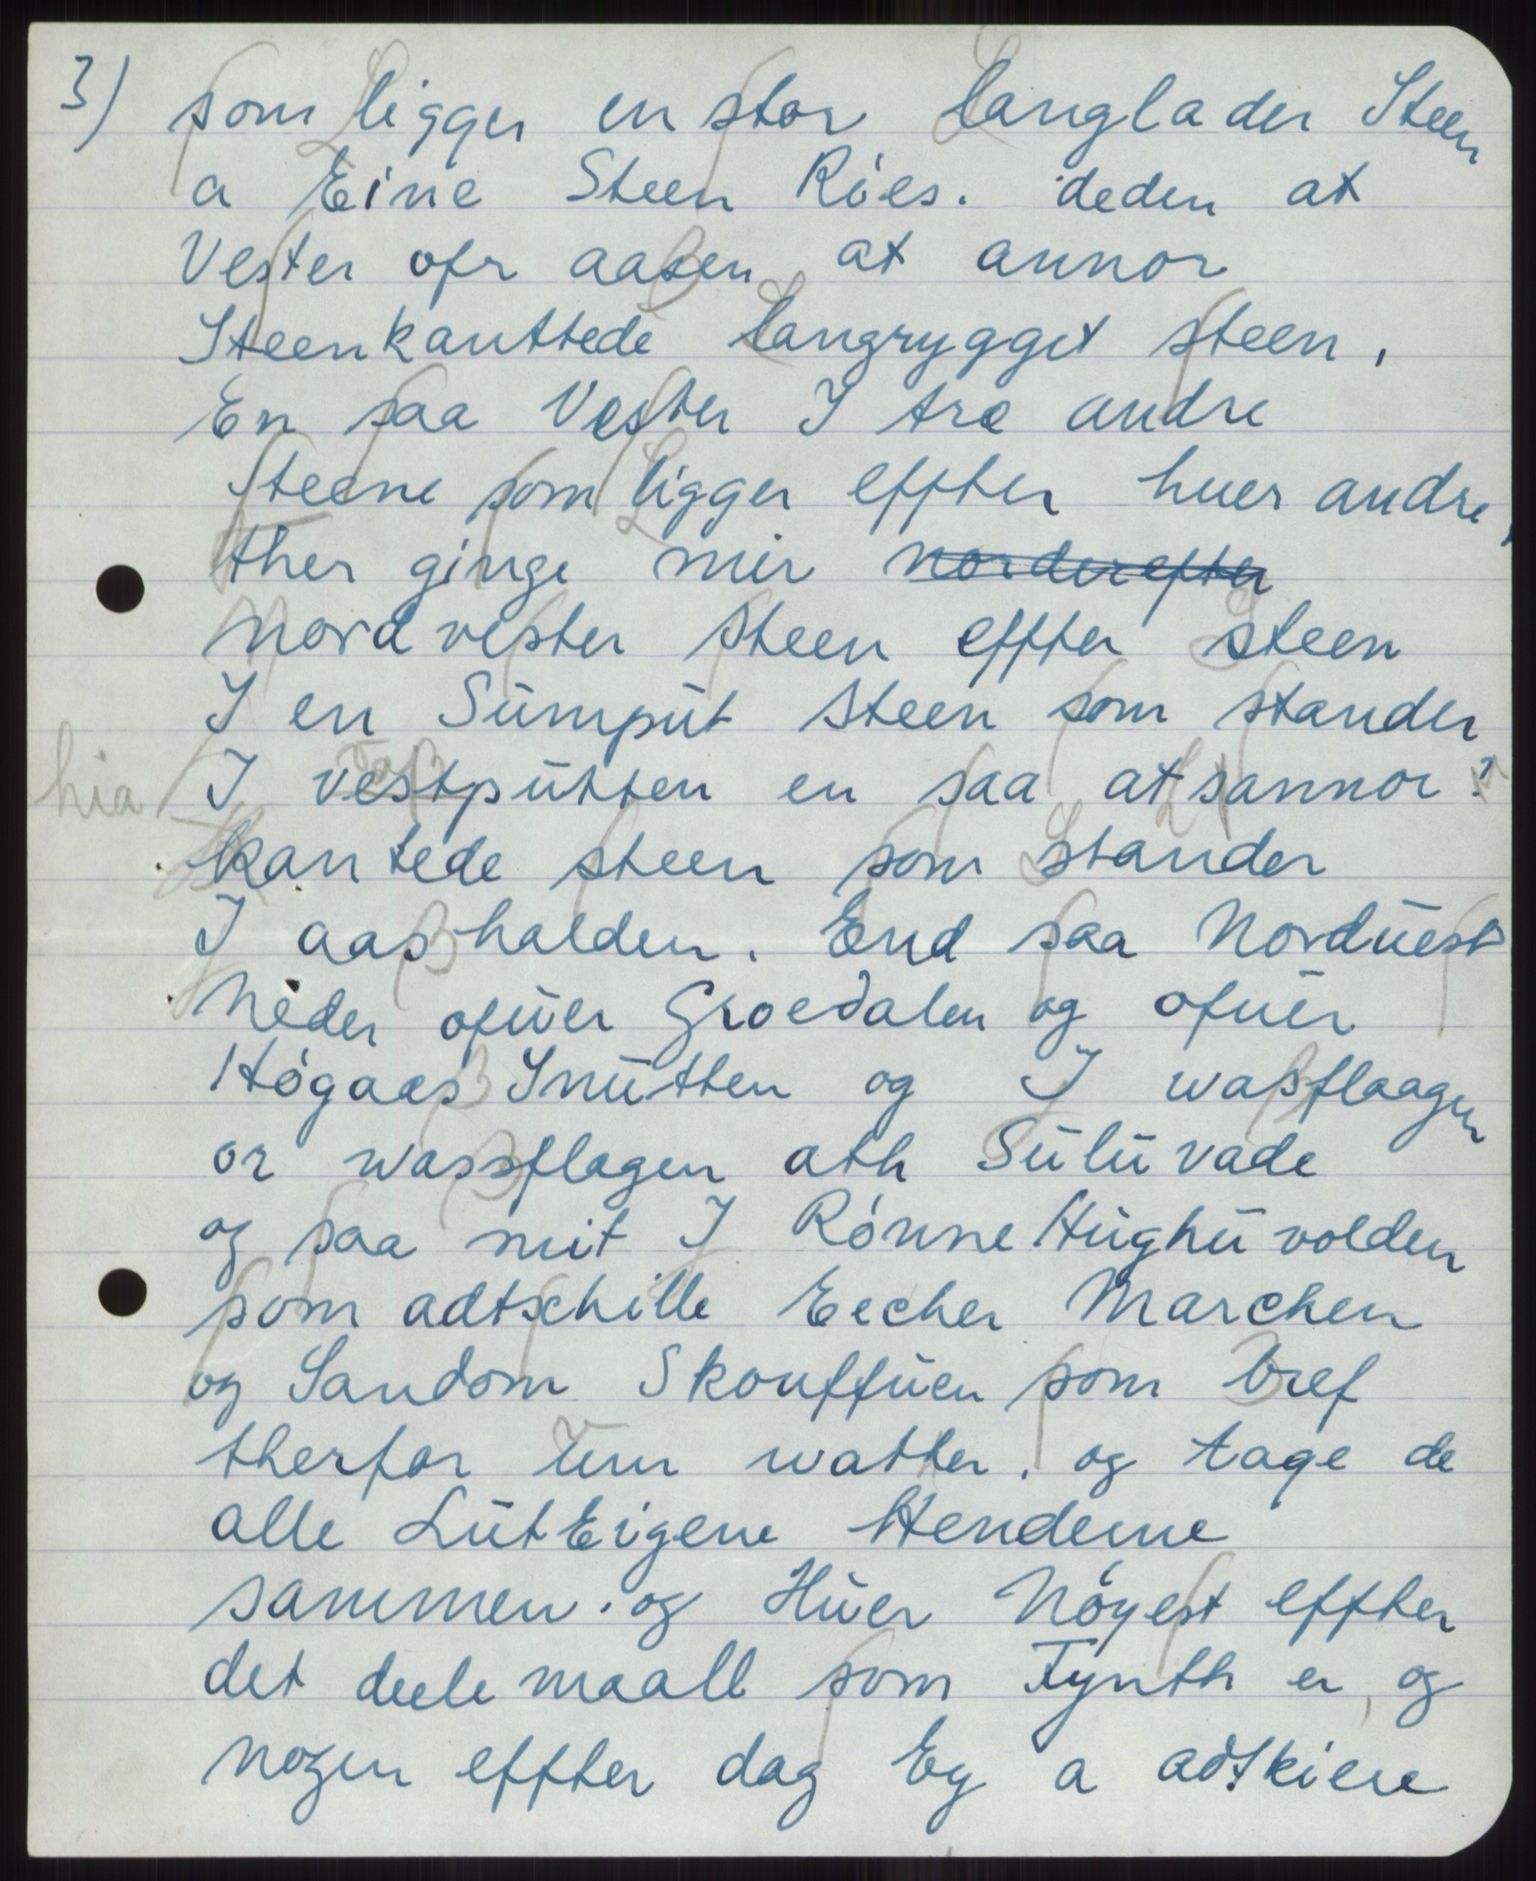 3) som ligger en stor langlader Steen
a Eine Steen Röes. deden at
Vester ofr aasen at annor
Steenkanttede langrygget steen,
En saa Vester I tre andre
Steene som ligger effter huer andre,
ther ginge mir norderefter
Nordvester steen effter steen
I en Sümpüt steen som stander
hia I vestpütten en saa at sannor?
kantede steen som stander
I aashalden. End saa Nordüest
Neder ofüer Groedalen og ofuer
Högaas Snütten og I wasflaagen
or wassflagen ath Sülüvade
og saa mit I Rönne Hüghü volden
som adtschille Eecher Marchen
og Sandom Skouffüen som bref
therfor üm watter. og tage de
alle LütEigene Henderne
sammen. og Hüer Nöyest effter
det deele maall som Fynth er, og
nogen effter dag Eg a adskiere